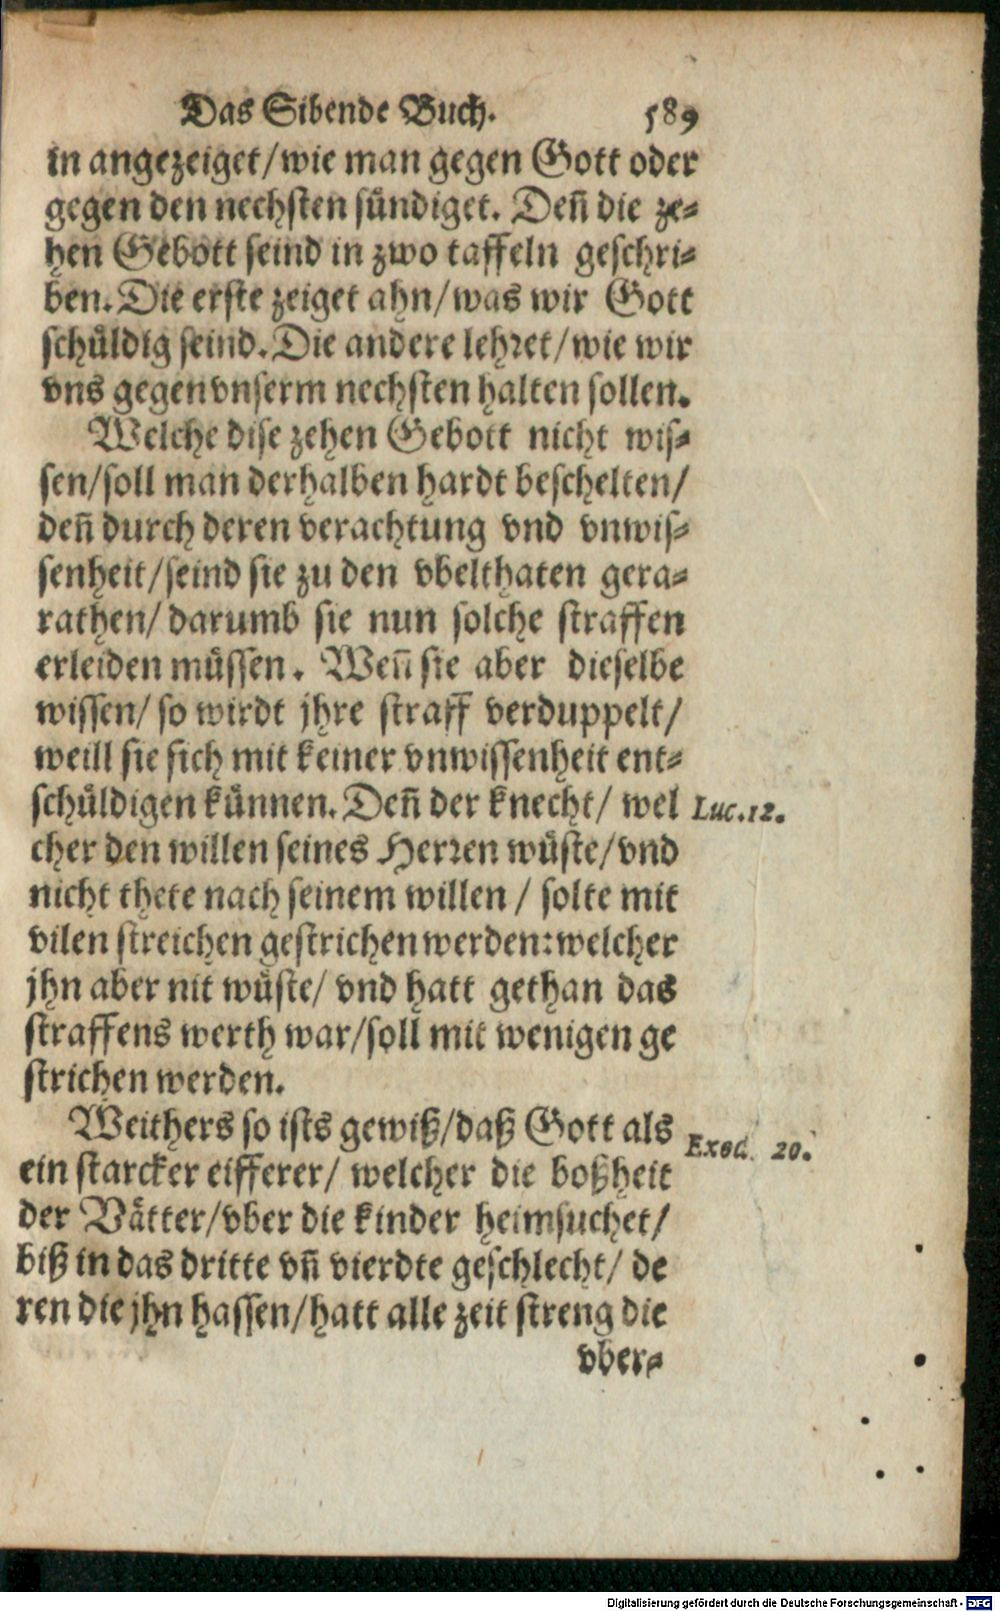 Das Sibende Buch. 589
in angezeiget/wie man gegen Gott oder
gegen den nechsten sündiget. Deñ die ze⸗
hen Gebott seind in zwo taffeln geschri⸗
ben. Die erste zeiget ahn/was wir Gott
schüldig seind. Die andere lehret/wie wir
vns gegen vnserm nechsten halten sollen.
Welche dise zehen Gebott nicht wis⸗
sen/soll man derhalben hardt beschelten/
deñ durch deren verachtung vnd vnwis⸗
senheit/seind sie zu den vbelthaten gera⸗
rathen/ darumb sie nun solche straffen
erleiden müssen. Weñ sie aber dieselbe
wissen/ so wirdt jhre straff verduppelt/
weill sie sich mit keiner vnwissenheit ent⸗
schüldigen künnen. Deñ der knecht/ wel Luc. 12.
cher den willen seines Herren wüste/vnd
nicht thete nach seinem willen / solte mit
vilen streichen gestrichen werden: welcher
jhn aber nit wüste/ vnd hatt gethan das
straffens werth war/soll mit wenigen ge
strichen werden.
Weithers so ists gewiß/daß Gott als Exod. 20.
ein starcker eifferer/ welcher die boßheit
der Vätter/vber die kinder heimsuchet/
biß in das dritte vñ vierdte geschlecht/ de
ren die jhn hassen/hatt alle zeit streng die
vber⸗
Digitalisierung gefördert durch die Deutsche Forschungsgemeinschaft - DFG